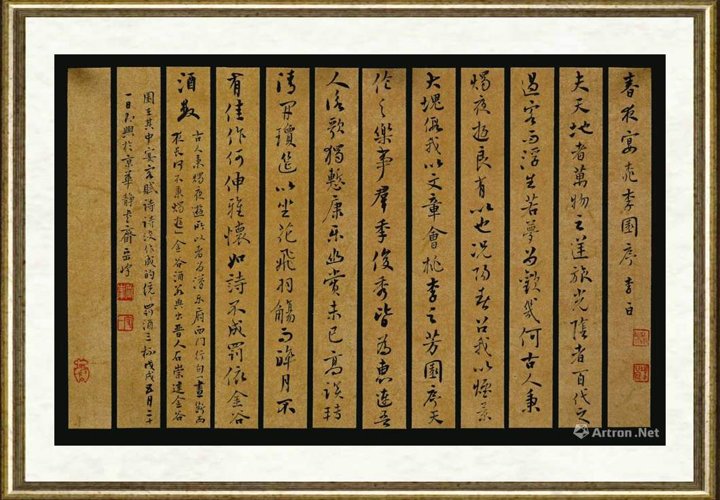 春夜宴桃李園序 李白
夫天地者萬物之逆旅光陰者百代之
過客而浮生若夢為歡幾何古人秉
燭夜遊良有以也況陽春召我以煙景
大塊假我以文章會桃李之芳園序天
倫之樂事群季俊秀皆為惠連吾
人詠歌獨慙康樂幽賞未已高談轉
清開瓊筵以坐花飛羽觴而醉月不
有佳作何伸雅懷如詩不成罰依金谷
酒數
古人秉燭夜遊所以者為漢樂府西門行句「晝短而
夜長何不秉燭遊」金谷酒數典出晉人石崇建金谷
園在其中宴客賦詩詩沒作成的便罰酒三杯戊戌五月二十
一日於京華靜齋
Artron.Net